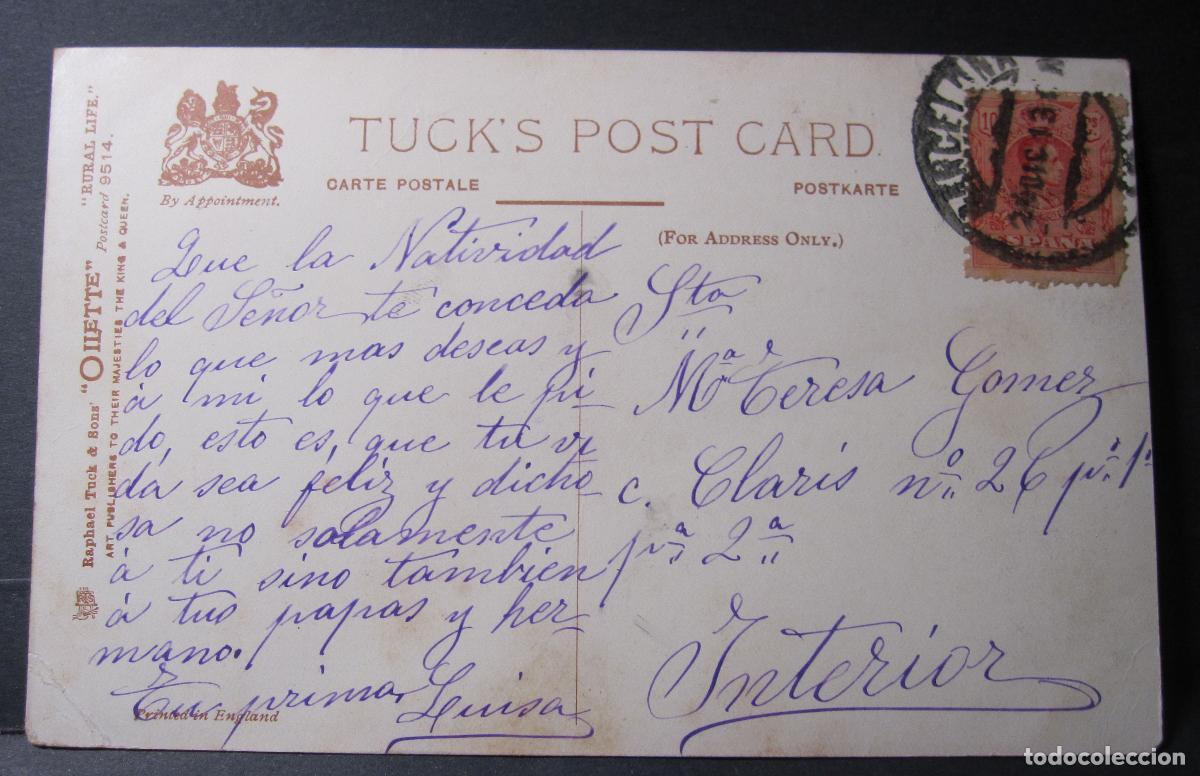 TUCK'S POST CARD.
CARTE POSTALE
POSTKARTE
By Appointment.
(FOR ADDRESS ONLY.)
"RURAL LIFE."
Postcard 9514.
Raphael Tuck & Sons' "OILETTE"
ART PUBLISHERS TO THEIR MAJESTIES THE KING & QUEEN.
Que la Natividad
del Señor te conceda
lo que mas deseas y
á mi lo que le pi-
do, esto es, que tu vi-
da sea feliz y dicho-
sa no solamente
á ti sino tambien
á tus papas y her-
mano.
Tu prima,
Luisa
Printed in England
Sta
Mª Teresa Gomez
c. Claris nº 26 pº 1ª
pª 2ª
Interior
BARCELONA
24 DIC 13
10
ESPAÑA
todocoleccion